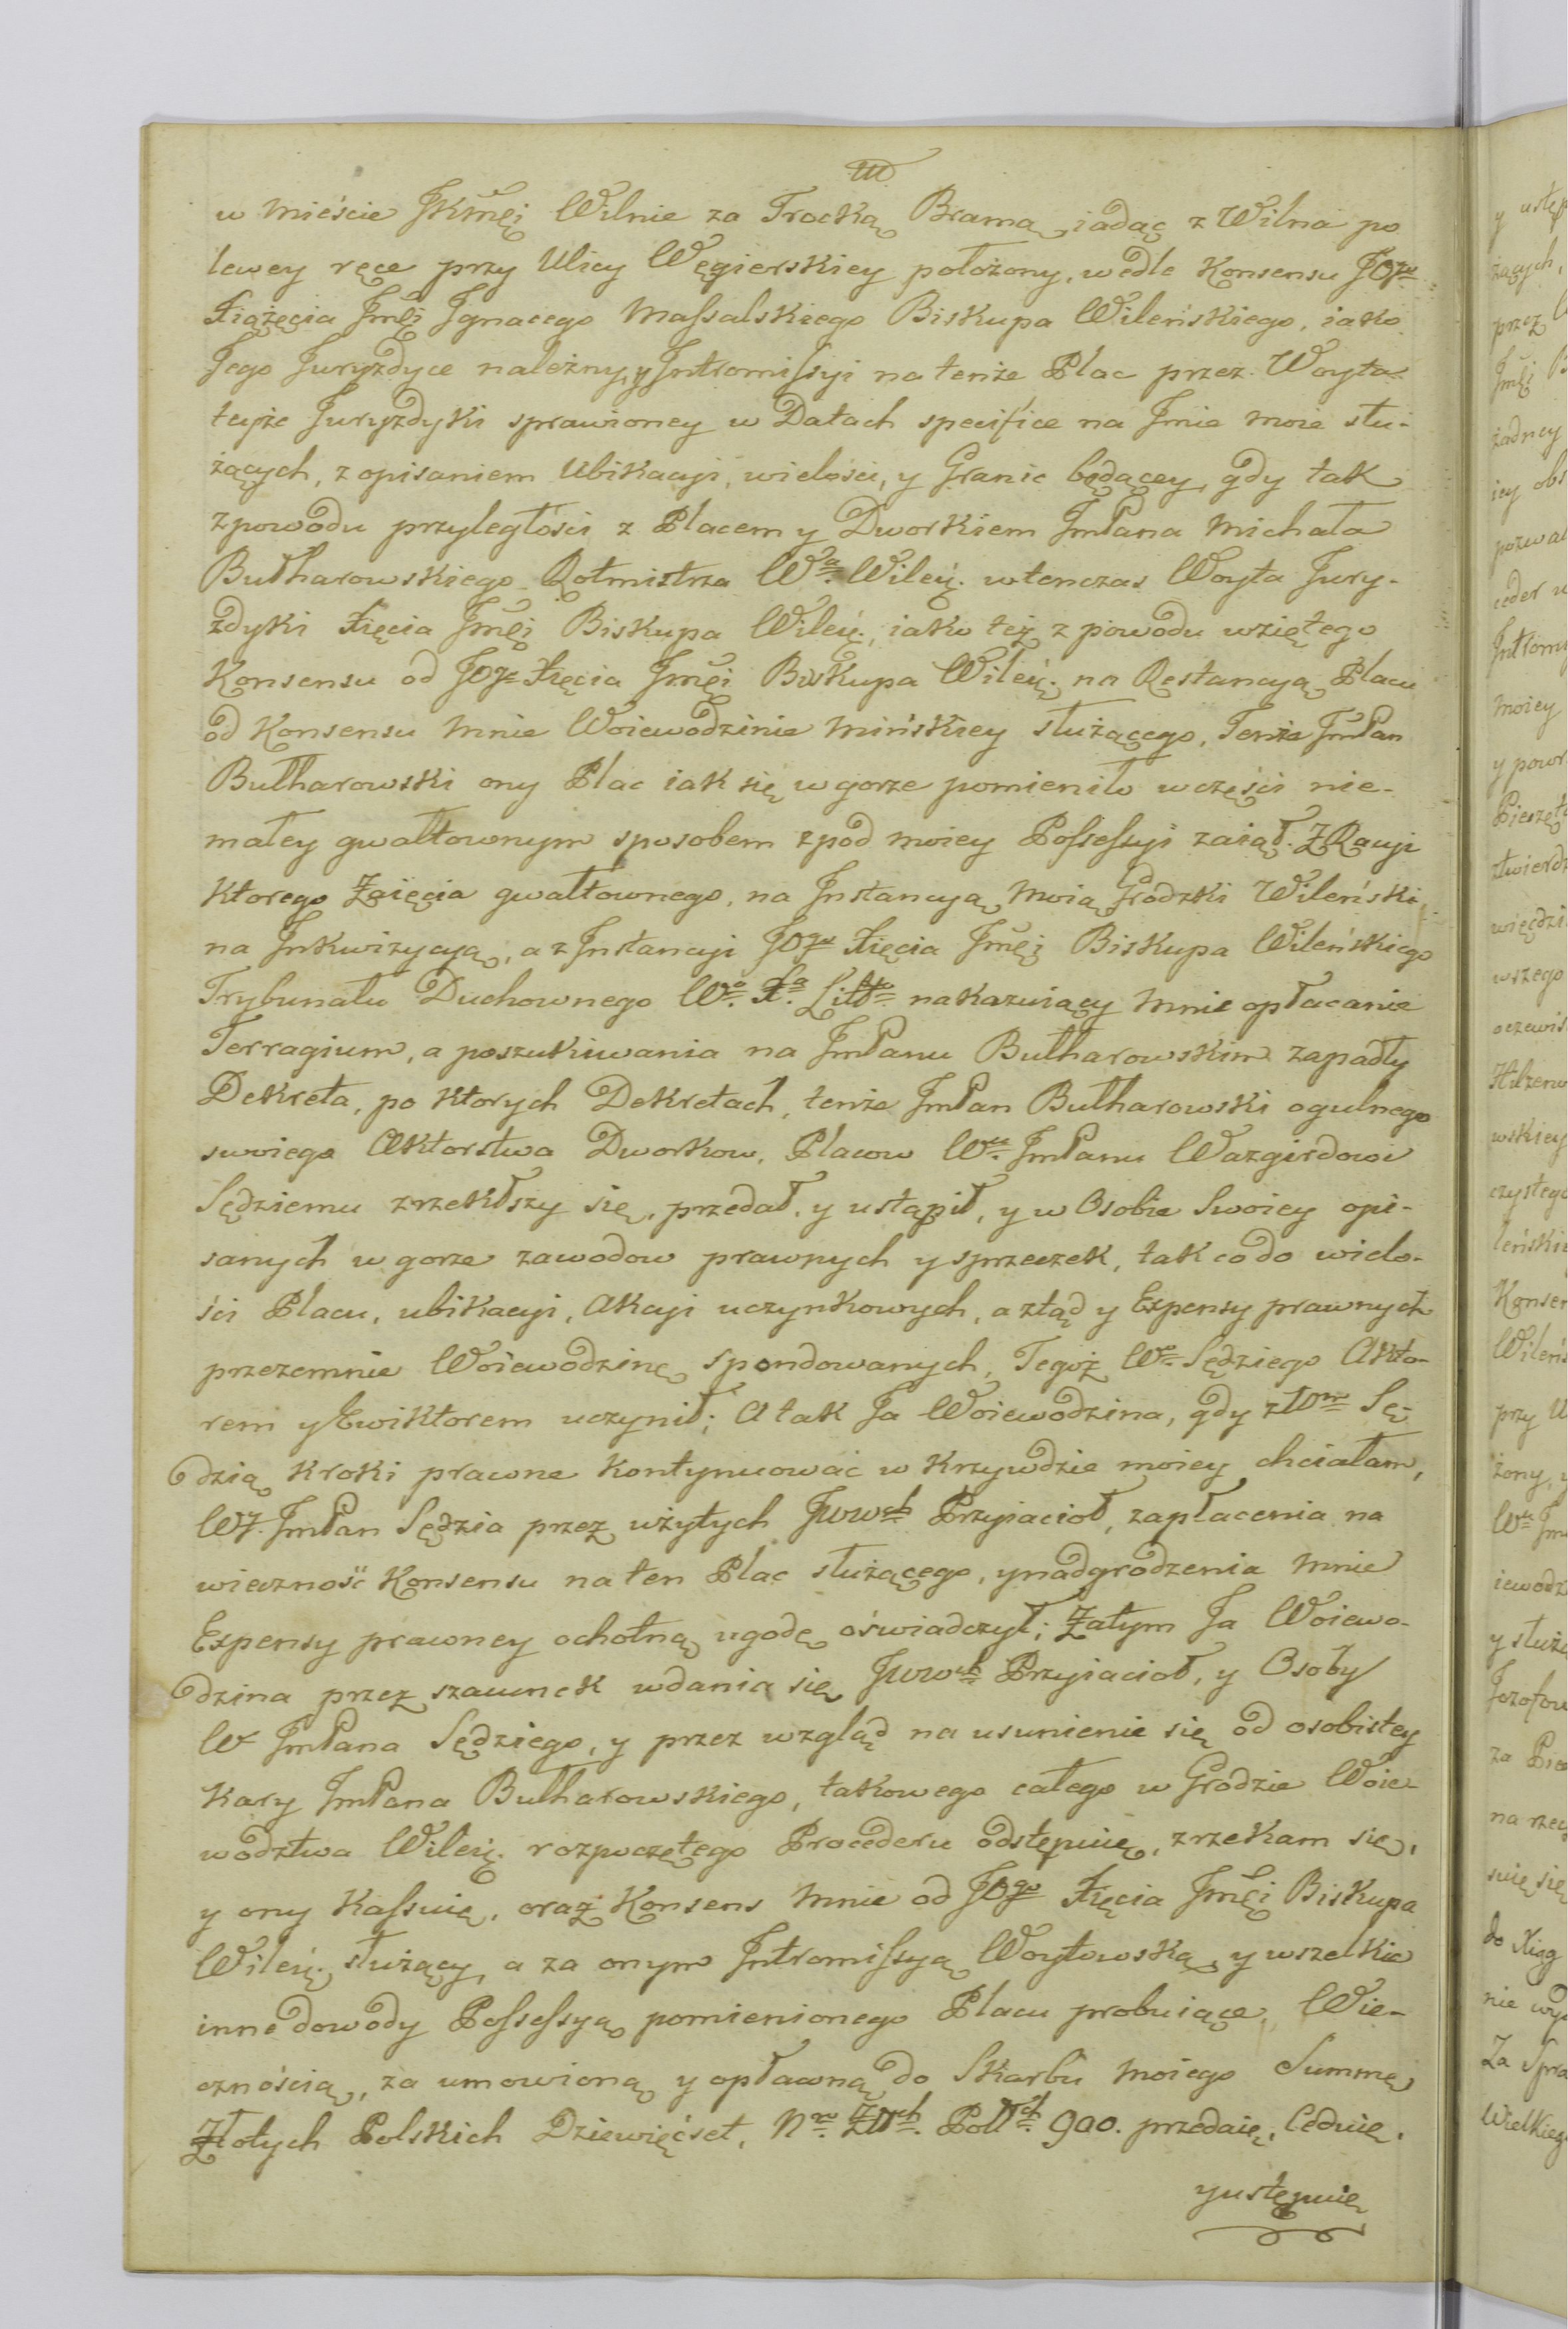 w mieście JKmći Wilnie za Trocką Bramą, iadąc z Wilna po
lewey ręce przy Ulicy Węgierskiey położony, wedle Konsensu JOgo
Xiążęcia Jmći Jgnacego Massalskiego Biskupa Wileńskiego, iako
Jego Juryzdyce należny, y Jntromissyi na tenże Plac przez Woyta
teyże Juryzdyki sprawioney w Datach specifice na Jmie moie słu-
żących, z opisaniem Ubikacyi, wielości, y Granic będącey, gdy tak
z powodu przyległości z Placem y Dworkiem JmPana Michała
Bułharowskiego Rotmistrza Wa. Wileń. wtenczas Woyta Jury-
zdyki Xięcia Jmći Biskupa Wileń., iako też z powodu wziętego
Konsensu od JOgo Xięcia Jmći Biskupa Wileń. na Restancyą Placu
od Konsensu mnie Woiewodzinie Mińskiey służącego, Tenże JmPan
Bułharowski ony Plac iak się w gorze pomieniło w części nie-
małey gwałtownym sposobem z pod moiey Possessyi zaiął. Z Racyi
ktorego Zaięcia gwałtownego, na Jnstancyą moią Grodzki Wileński
na Jnkwizycyą, a z Jnstancyi JOgo Xięcia Jmći Biskupa Wileńskiego
Trybunału Duchownego Wgo. Xa. Litto. nakazuiący mnie opłacanie
Terragium, a poszukiwania na JmPanu Bułharowskim zapadły
Dekreta, po ktorych Dekretach, tenże JmPan Bułharowski ogulnego
swoiego Aktorstwa Dworkow, Placow Wu. JmPanu Wazgirdowi
Sędziemu zrzekłszy się, przedał, y ustąpił, y w Osobie swoiey opi-
sanych w gorze zawodow prawnych y sprzeczek, tak co do wielo-
ści Placu, ubikacyi, Akcyi uczynkowych, a ztąd y Expensy prawnych
przezemnie Woiewodzinę spondowanych, Tegoż Wo. Sędziego Akto-
rem y Ewiktorem uczynił; A tak Ja Woiewodzina, gdy z Wm Sę-
dzią kroki prawne kontynuować w krzywdzie moiey chciałam,
WJ. JmPan Sędzia przez użytych Jwwch Przyiacioł, zapłacenia na
wieczność Konsensu na ten Plac służącego, y nadgrodzenia mnie
Expensy prawney ochotną ugodę oświadczył; Zatym Ja Woiewo-
dzina przez szacunek wdania się Jwwch Przyiacioł, y Osoby
W JmPana Sędziego, y przez wzgląd na usunienie się od osobistey
kary JmPana Bułharowskiego, takowego całego w Grodzie Woie-
wodztwa Wileń. rozpoczętego Procederu odstępuię, zrzekam się,
y ony kassuię, oraz Konsens mnie od JOgo Xięcia Jmći Biskupa
Wileń. służący, a za onym Jntromissyą Woytowską, y wszelkie
inne dowody Possessyą pomienionego Placu probuiące, Wie-
cznością, za umowioną y opłacną do Skarbu moiego Summę
Złotych Polskich Dziewięćset, Nro. Złłch. Pollch. 900. przedaię, Ceduię,
y ustępuię